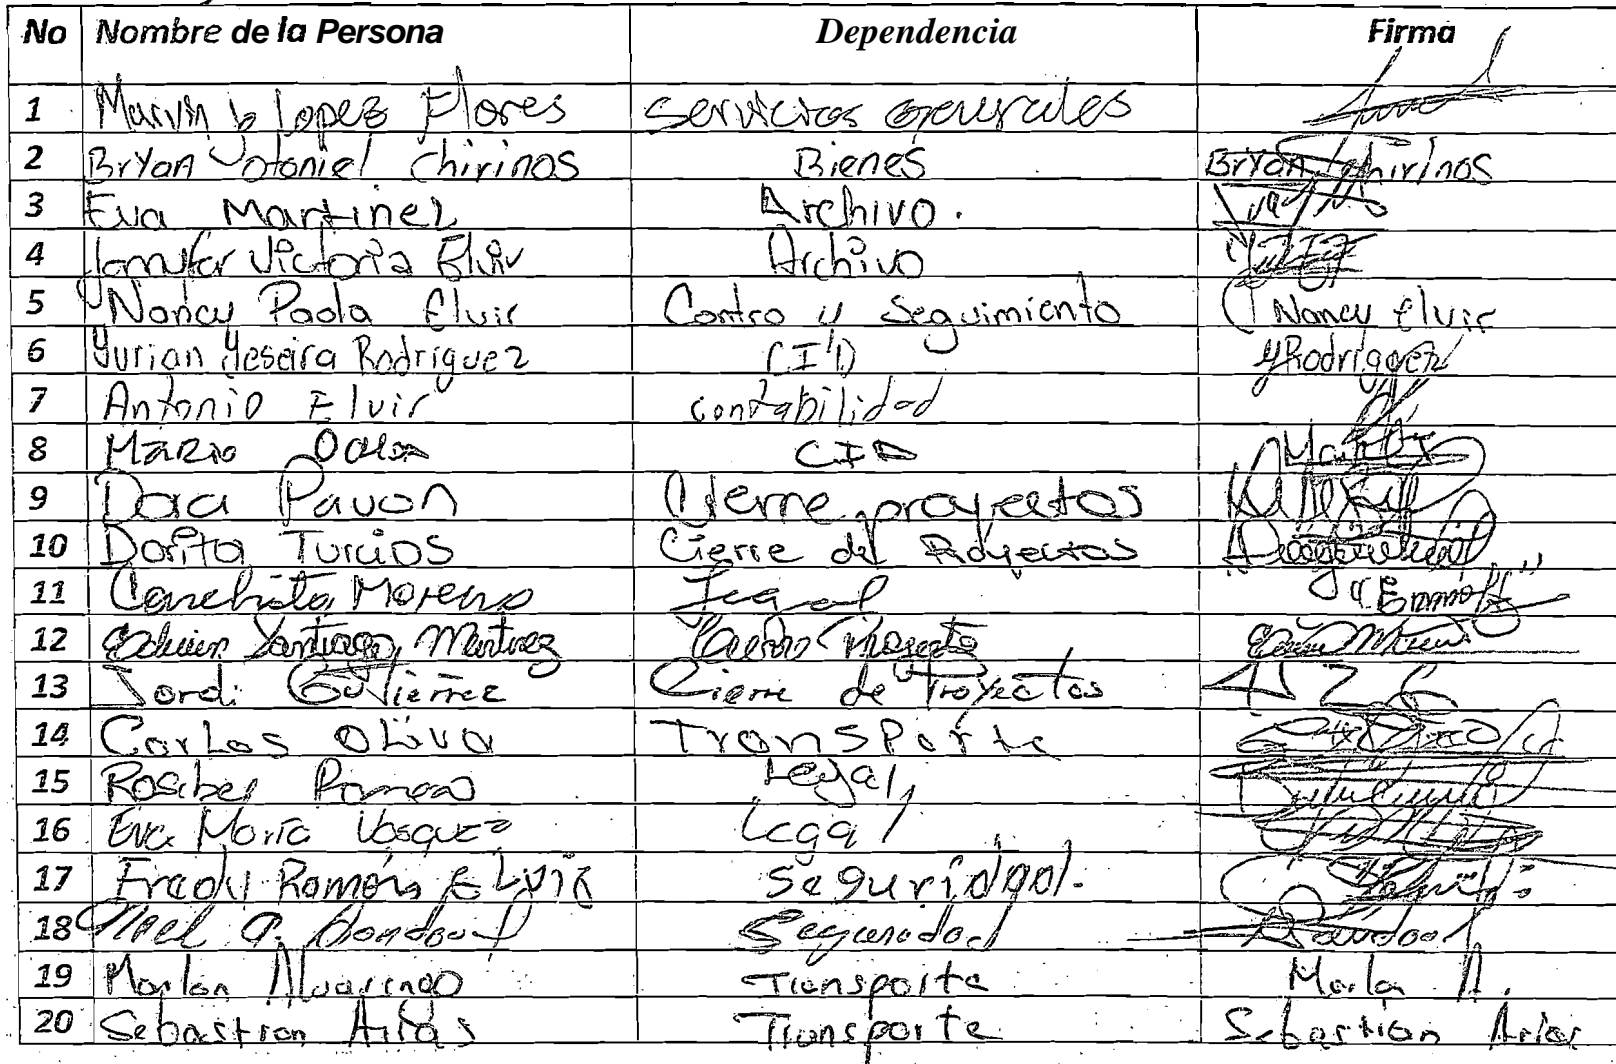 No Nombre de la Persona Dependencia Firma
1 Marvin López Flores Servicios generales
2 BrYan Otoniel Chirinos Bienes BrYan Chirinos
3 Eva Martinez Archivo. Eva
4 Victoria Elvir Archivo
5 Nancy Paola Elvir Contro y Seguimiento Nancy Elvir
6 Yurian Yeseira Rodriguez CID YRodriguez
7 Antonio Elvir contabilidad
8 Mario CID
9 Dora Pavon Cierre proyectos
10 Dorita Turcios Cierre de Proyectos
11 Conchita Moreno Legal
12 Edwin Santiago Martinez
13 Jordi Gutierrez Cierre de Proyectos
14 Carlos Oliva Transporte
15 Rosibel Legal
16 Eva María Vasquez Legal
17 Fredy Ramón Elvir Seguridad.
18 Noel Seguridad
19 Marlon Alvarengo Transporte Marlon A.
20 Sebastian Arias Transporte Sebastian Arias